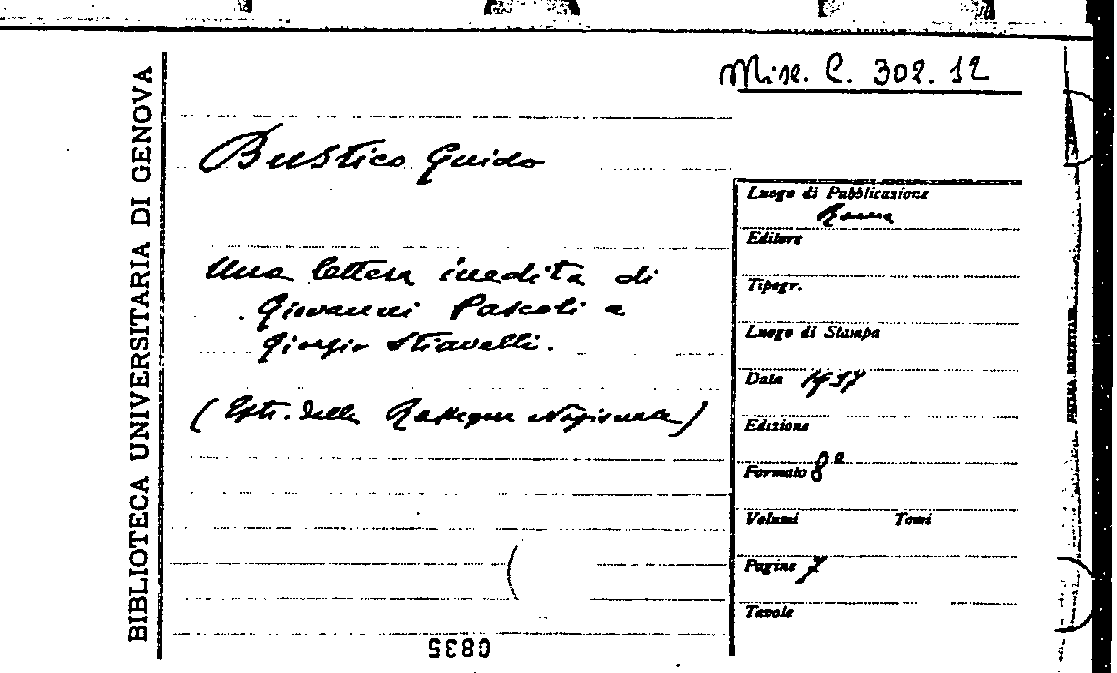 Misc. C. 302. 12
BIBLIOTECA UNIVERSITARIA DI GENOVA
Bustico Guido
Una lettera inedita di
Giovanni Pascoli a
Giorgio Stiavelli.
(Estr. della Rassegna Nazionale)
Luogo di Pubblicazione
Roma
Editore
Tipogr.
Luogo di Stampa
Data 1937
Edizione
Formato 8°
Volumi Tomi
Pagine 7
Tavole
0835